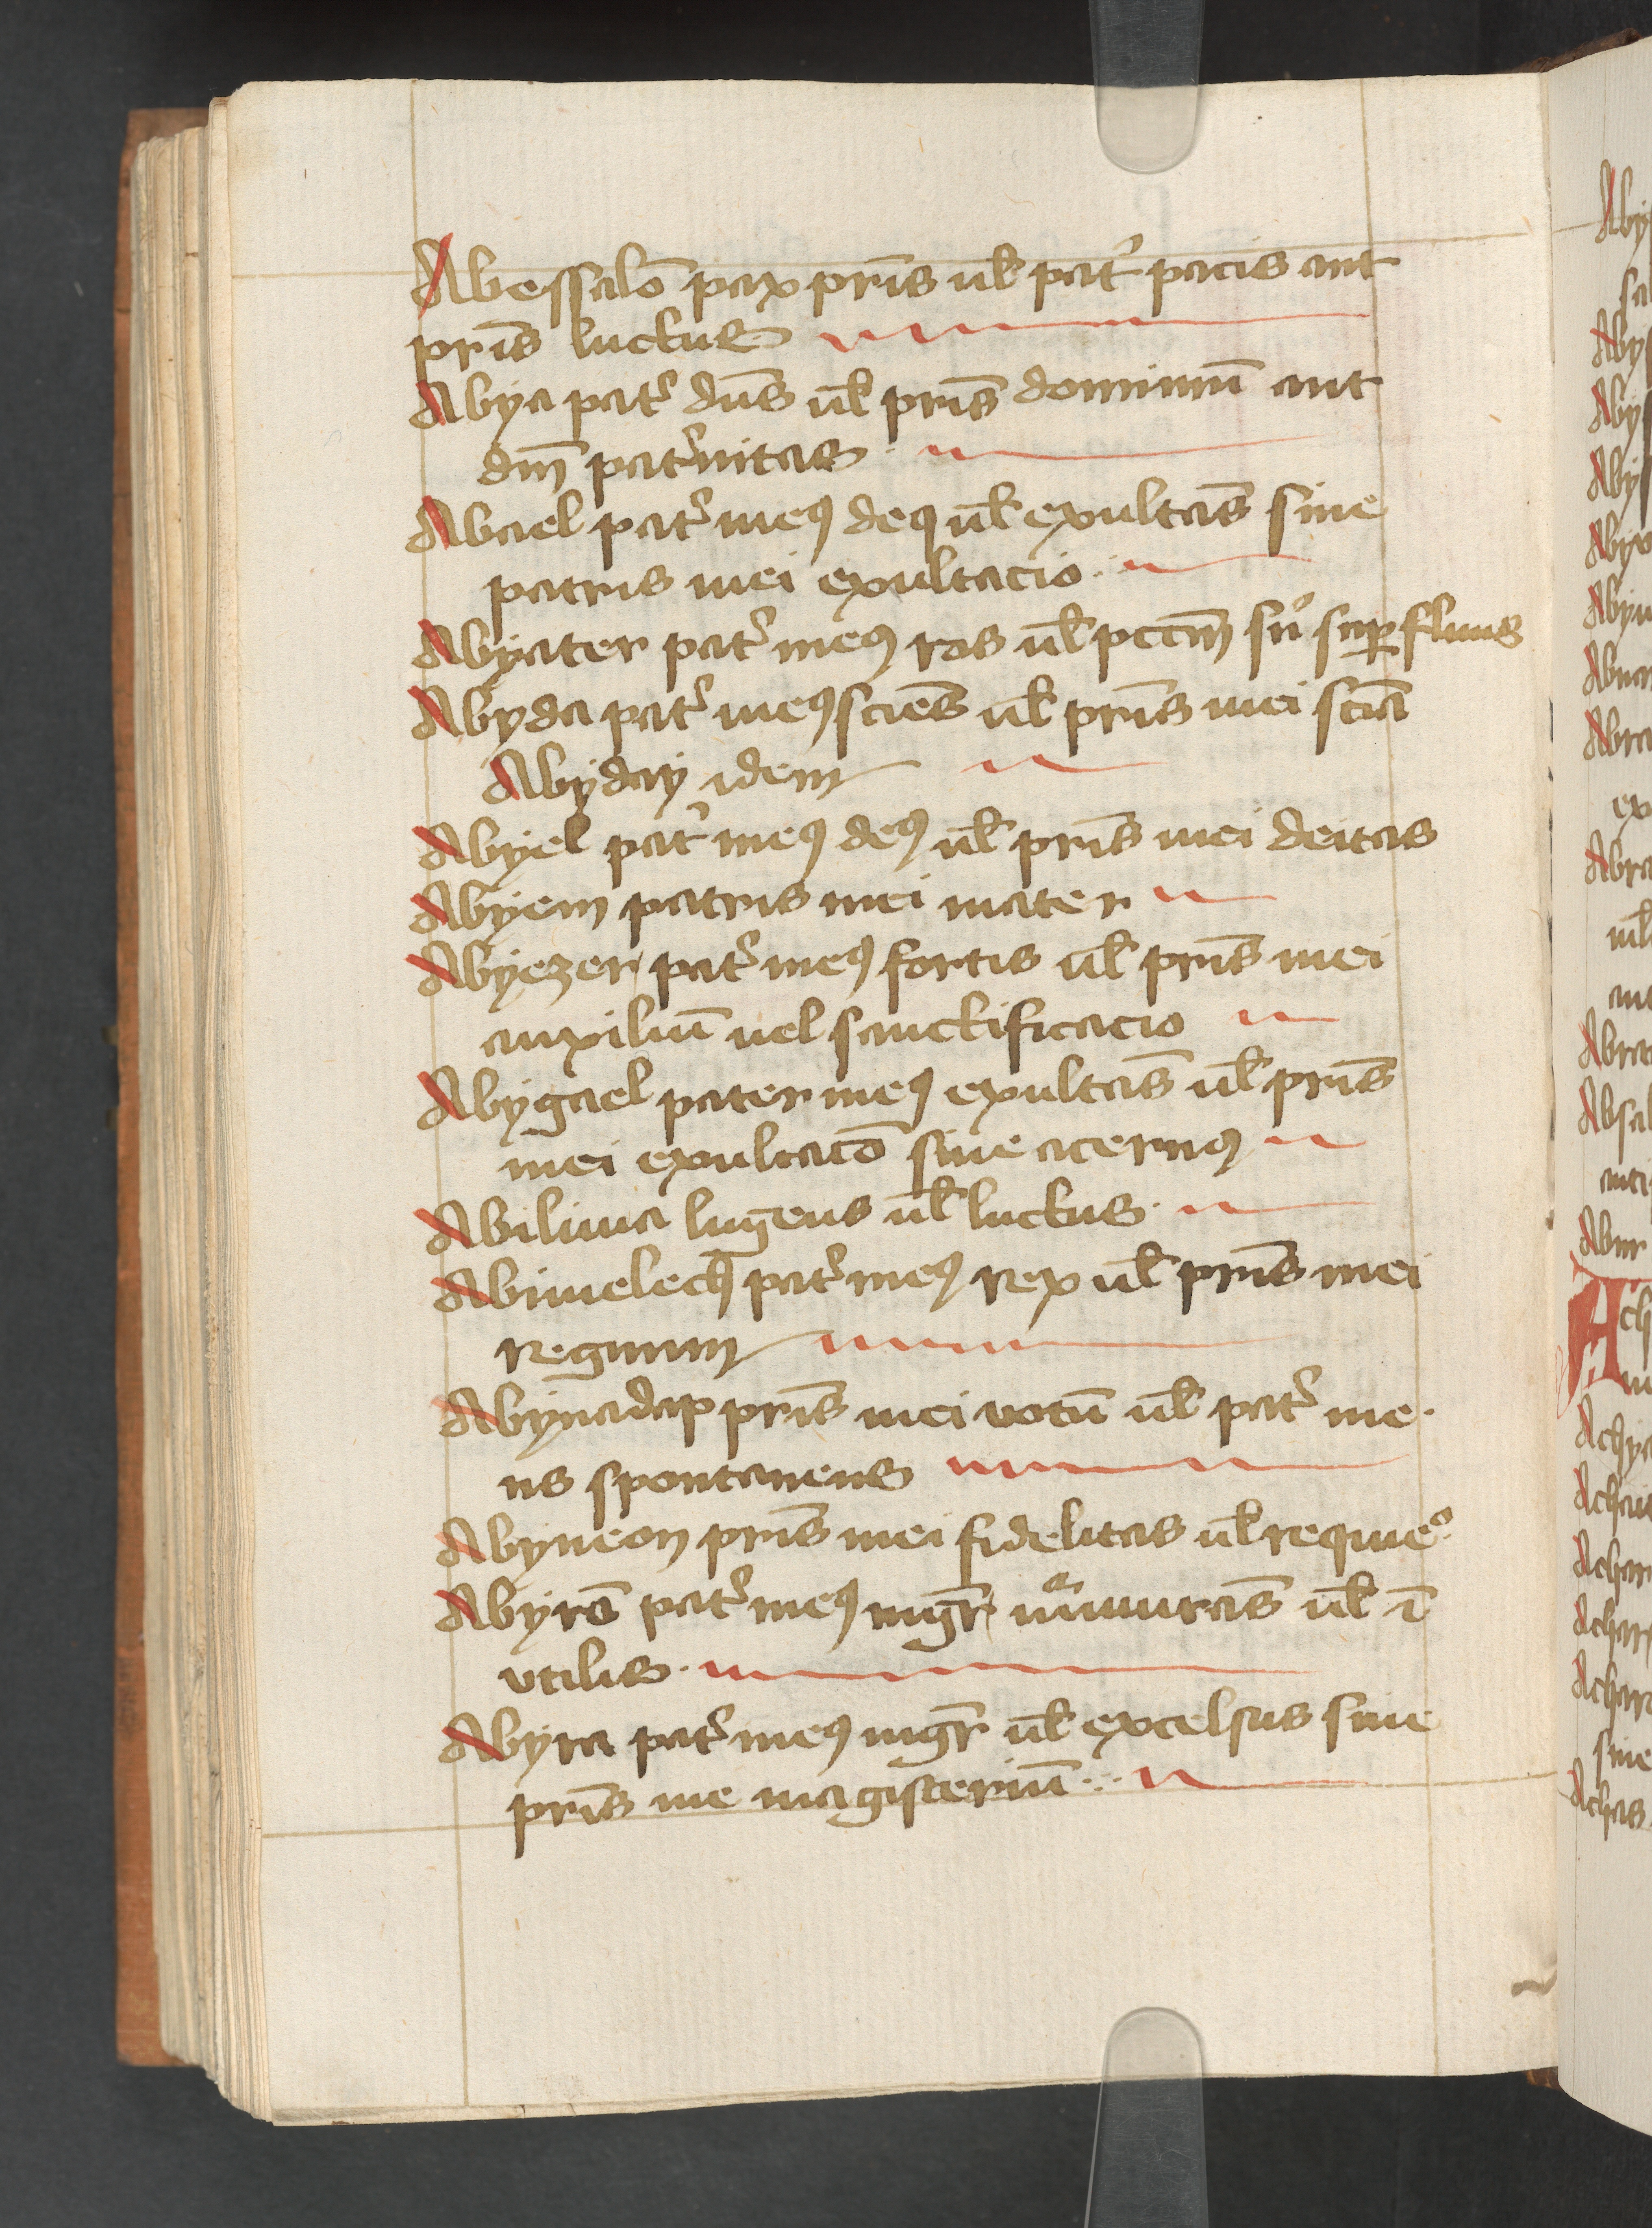 Abessalō pax pr̄is ul̄ patᷣ pacis aut
pr̄is luctus
Abya patᷣ dn̄s ul̄ pr̄is dominiū aut
dn̄i patᷣnitas
Abael patᷣ meꝯ deꝯ ul̄ exultās siue
patris mei exultacio
Abyater patᷣ meꝯ ros ul̄ pccm̄ suꝰ suꝑfluus
Abyda patᷣ meꝯ sciēs ul̄ pr̄is mei scīa
Abyday idem
Abyel patᷣ meꝯ deꝯ ul̄ pr̄is mei deitas
Abyem patris mei mater
Abyezer patᷣ meꝯ fortis ul̄ pr̄is mei
auxiliū uel sanctificacio
Abygael pater meꝯ exultās ul̄ pr̄is
mei exultacō siue aternꝯ
Abilina lugens ul̄ luctus
Abimelech patᷣ meꝯ rex ul̄ pr̄is mei
regnum
Abynadap pr̄is mei votū ul̄ patᷣ me
us spontaneus
Abyneon pr̄is mei fidelitas ul̄ requieᵒ
Abyrō patᷣ meꝯ mgr̄ ul̄ ī
vtilis
Abyra patᷣ meꝯ mgr̄ ul̄ excelsus siue
pr̄is me magisteriū